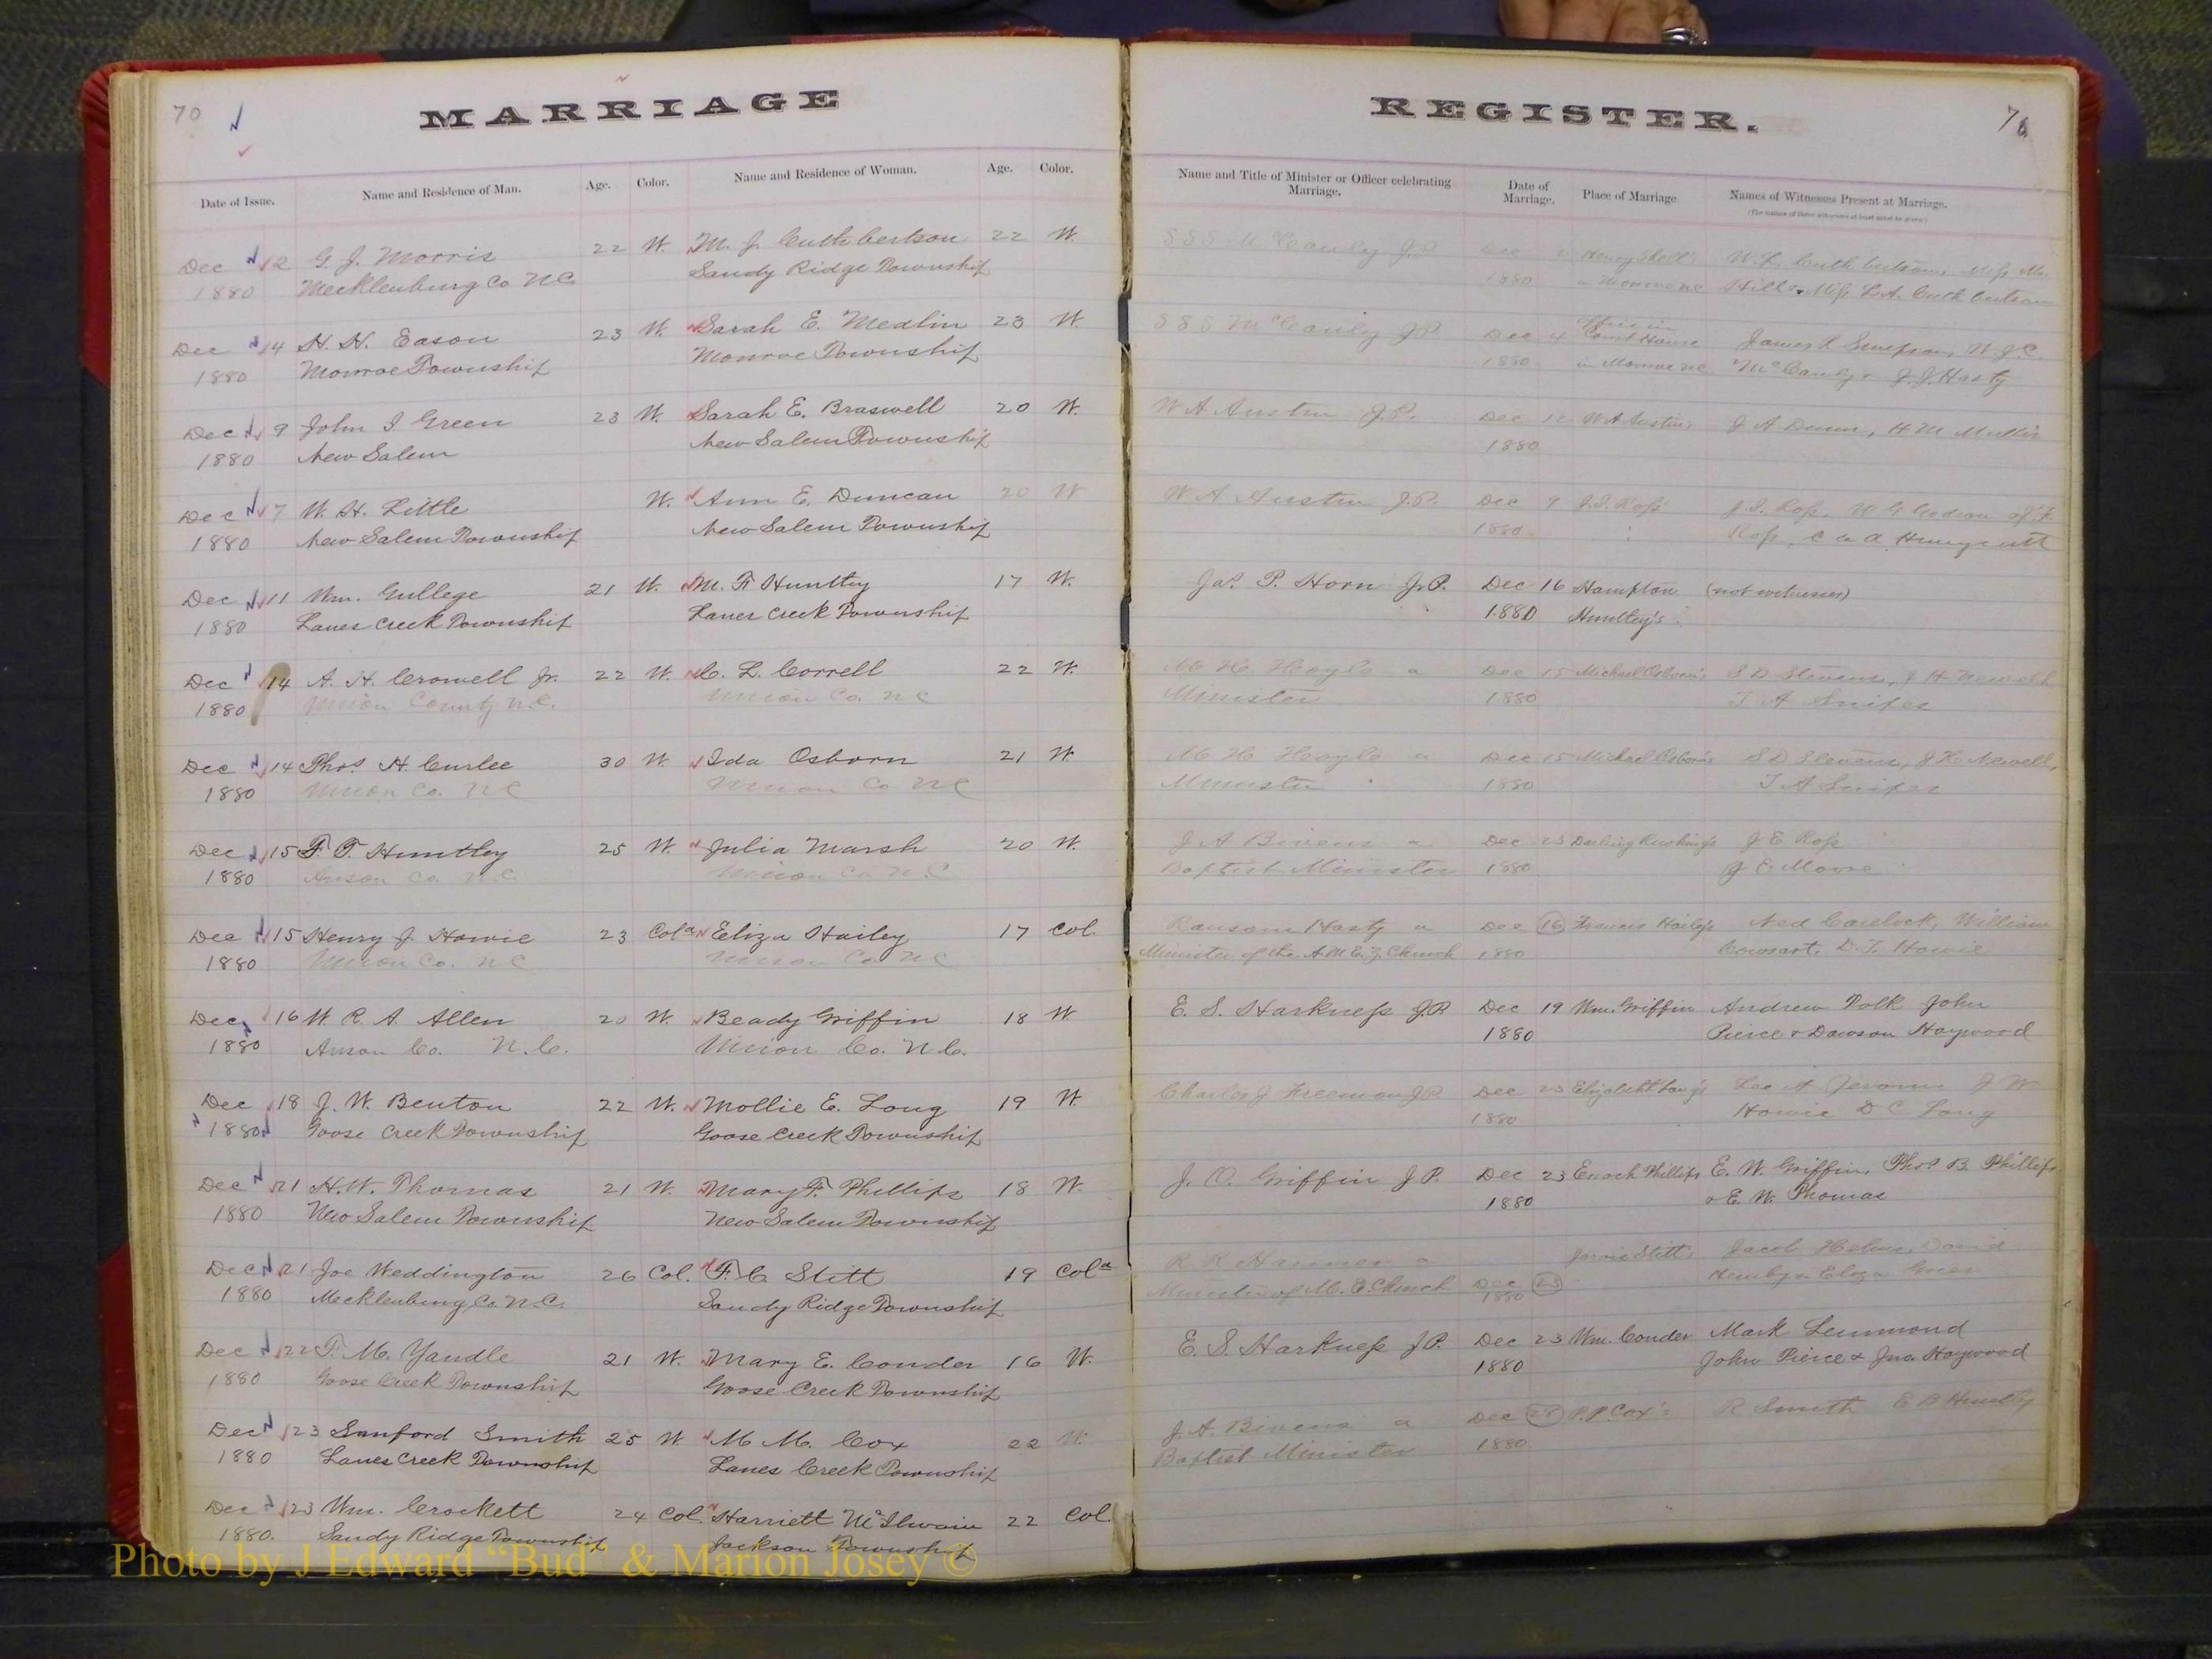 70
MARRIAGE
REGISTER.
Date of Issue. Name and Residence of Man. Age. Color. Name and Residence of Woman. Age. Color.
Name and Title of Minister or Officer celebrating Marriage. Date of Marriage. Place of Marriage Names of Witnesses Present at Marriage.
(The names of three witnesses at least must be given)
Dec 2 G. J. Morris 22 W. M. J. Cuthbertson 22 W. S S S McCauley J.P. Dec 2
1880 Mecklenburg Co NC Sandy Ridge Township 1880 Monroe NC
Dec 4 H. H. Eason 23 W. Sarah E. Medlin 23 W. S S S McCauley J.P. Dec 4 Office in Court House
1880 Monroe Township Monroe Township 1880 in Monroe NC McCauley & J. J. Hasty
Dec 9 John I Green 23 W. Sarah E. Braswell 20 W. W A Austin J.P. Dec 12 W A Austin's
1880 New Salem New Salem Township 1880
Dec 7 W. H. Little W. Ann E. Duncan 20 W W A Austin J.P. Dec 9
1880 New Salem Township New Salem Township 1880
Dec 11 Wm. Gullege 21 W. M. F Huntley 17 W. Jas. P. Horn J.P. Dec 16 Hampton (not witnesses)
1880 Lanes Creek Township Lanes Creek Township 1880 Huntley's
Dec 14 A. H. Crowell Jr. 22 W. C. L. Correll 22 W. M H Hoyle a Dec 15 Michael Osborn's S D Stevens, J H Newell
1880 Union County N.C. Union Co. NC Minister 1880 T A Snipes
Dec 14 Thos. H. Curlee 30 W. Ida Osborn 21 W. M H Hoyle a Dec 15 Michael Osborn's S D Stevens, J H Newell,
1880 Union Co. NC Union Co. NC Minister 1880 T A Snipes
Dec 15 F. T. Huntley 25 W. Julia Marsh 20 W. J A Bivens a Dec 23 Darling Rushing's J E Ross
1880 Anson Co. N.C. Union Co. N.C Baptist Minister 1880 J C Moore
Dec 15 Henry J. Howie 23 Cold Eliza Hailey 17 Col. Ransom Hasty a Dec 16 Francis Hailey's
1880 Union Co. NC Union Co NC Minister of the A M E Z. Church 1880 D. T. Howie
Dec 16 W. R. A. Allen 20 W. Beady Griffin 18 W E. S. Harkness J.P. Dec 19 Wm. Griffin Andrew Polk John
1880 Anson Co. N.C. Union Co. N.C. 1880 Pierce & Dawson Haywood
Dec 18 J. W. Benton 22 W. Mollie E. Long 19 W. Charles J Freeman J.P. Dec 23 Elizabeth Long's
1880 Goose Creek Township Goose Creek Township 1880 Howie D C Long
Dec 21 H. W. Thomas 21 W. Mary F. Phillips 18 W. J. O. Griffin J.P. Dec 23 Enoch Phillips E. W. Griffin, Thos. B. Phillips
1880 New Salem Township New Salem Township 1880 & E. W. Thomas
Dec 21 Joe Weddington 26 Col. F. C Stitt 19 Cold
1880 Mecklenburg Co. N.C. Sandy Ridge Township Minister of M. E. Church Dec 23 1880
Dec 22 F. M. Yandle 21 W. Mary E. Conder 16 W. E. S. Harkness J.P. Dec 23 Wm. Conder Mark Lemmond
1880 Goose Creek Township Goose Creek Township 1880 John Pierce & Jno. Haywood
Dec 23 Sanford Smith 25 W. M M. Cox 22 W. J. A. Bivens a Dec P. P. Cox's R Smith
1880 Lanes Creek Township Lanes Creek Township Baptist Minister 1880
Dec 23 Wm. Crockett 24 Col. Harriett McIlwain 22 Col.
1880. Sandy Ridge Township Jackson Township
Photo by J Edward “Bud” & Marion Josey ©